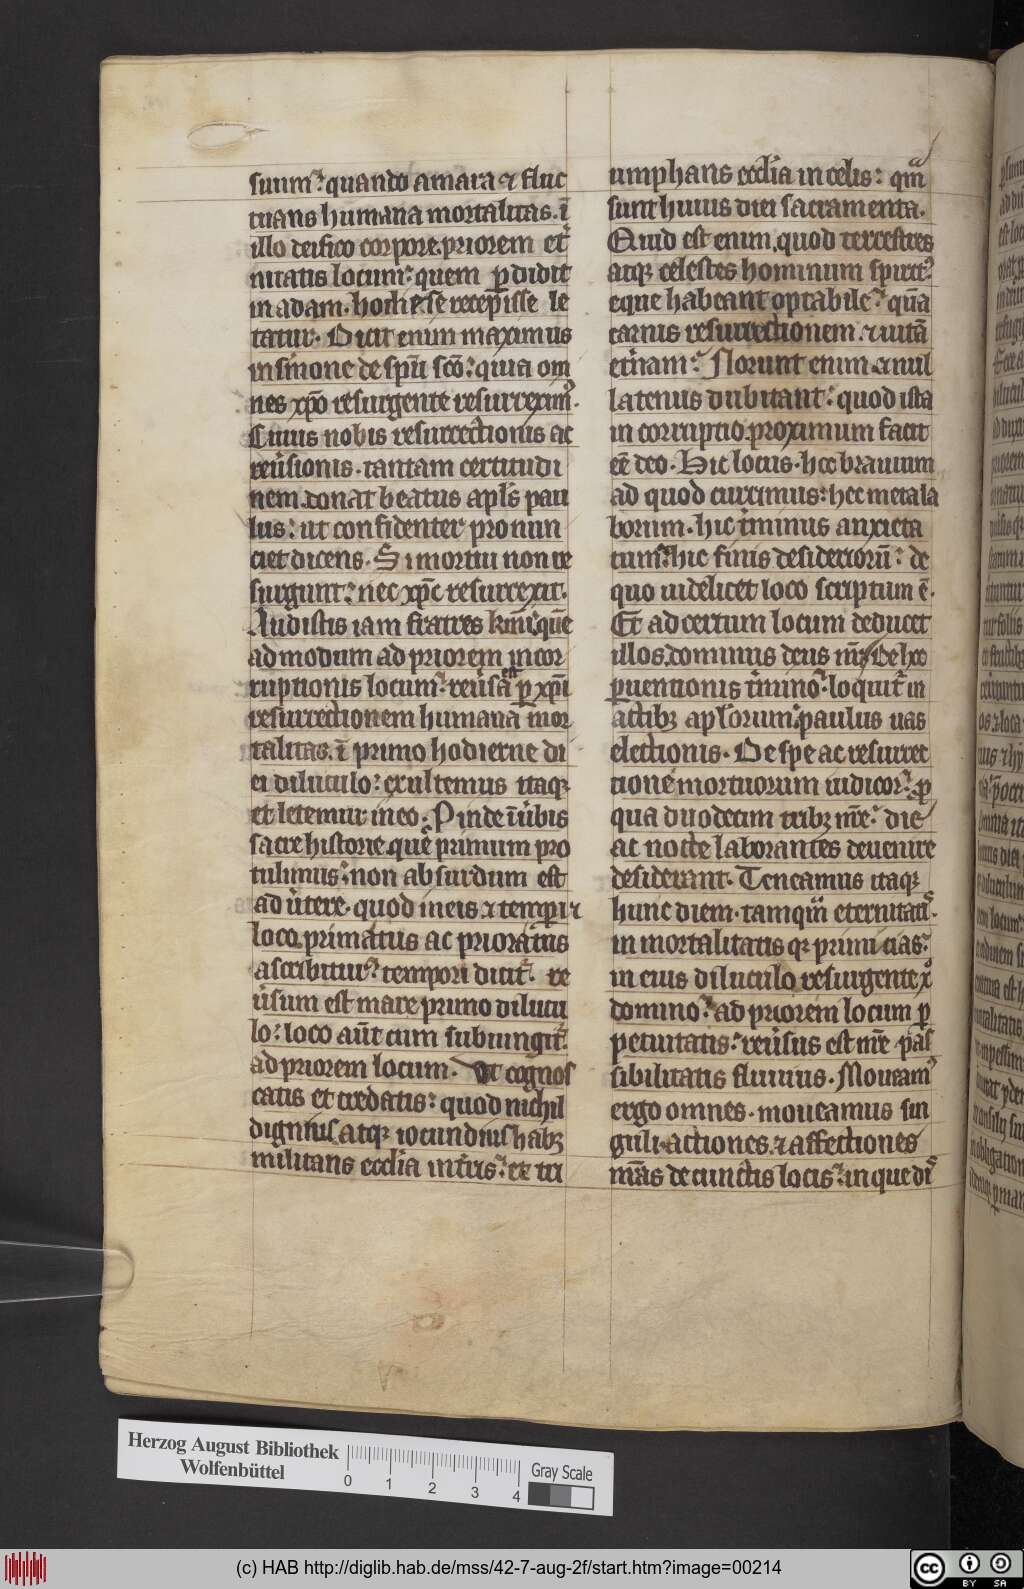 suum: quando amara ⁊ fluc
tuans humana mortalitas. ī
illo deifico corpore. priorem et̾
nitatis locum: quem ꝑdidit
in adam. hodie se recepisse le
tatur. Dicit enim maximus
in s̾mone de spū sc̄o: quia om
nes xp̄o resurgente resurrexim᷒.
Cuius nobis resurrectionis ac
reu̾sionis. tantam certitudi
nem donat beatus apl̄s pau
lus: ut confidenter pronun
ciet dicens. Si mortui non re
surgunt: nec xp̄c resurrexit.
Audistis iam fratres kmī: que
ad modum ad priorem incor
ruptionis locum: reu̾sa est ꝑ xp̄i
resurrectionem humana mor
talitas. ī primo hodierne di
ei diluculo: exultemus itaqꝫ
et letemur in eo. Proinde ī u̾bis
sacre historie. que primum pro
tulimus: non absurdum est
aduertere. quod in eis ⁊ tempori ⁊
loco primatus ac prioratus
ascribitur: tempori dicit̾. re
u̾sum est mare primo dilucu
lo: loco aūt cum subiungit̾.
ad priorem locum. Ut cognos
catis et credatis: quod nichil
dignius atqꝫ iocundius habꝫ
militans eccl̄ia in t̾ris: et tri
umphans eccl̄ia in celis: qm̄
sunt huius diei sacramenta.
Quid est enim, quod terrestres
atqꝫ celestes hominum spirit᷒
eque habeant optabile: quā
carnis resurrectionem. ⁊ uitā
et̾nam: Norunt enim. ⁊ nul
latenus dubitant: quod ista
in corruptio. proximum facit
eē deo. Hic locus. hoc brauium
ad quod currimus: hec meta la
borum. hic t̾minus anxieta
tum: hic finis desideriorū: de
quo uidelicet loco scriptum ē.
Et ad certum locum deducet
illos dominus deus nr̄. De hoc
ꝑuentionis t̾mino: loquit̾ in
actibꝫ apl̄orum: paulus uas
electionis. De spe ac resurrec
tione mortuorum iudicor: ꝓ
qua duodecim tribꝫ nr̄e: die
ac nocte laborantes deuenire
desiderant. Teneamus itaqꝫ
hunc diem. tamquam eternitatis.
inmortalitatis qꝫ primicias:
in eius diluculo resurgente xo
domino: ad priorem locum ꝑ
petuitatis: reu̾sus est mr̄e pas
sibilitatis fluuius. Moueam᷒
ergo omnes. moueamus sin
guli. actiones. ⁊ affectiones
nr̄as de cunctis locis: in que di
(c) HAB http://diglib.hab.de/mss/42-7-aug-2f/start.htm?image=00214
Herzog August Bibliothek
Wolfenbüttel
0 1 2 3 4
Gray Scale
CC BY SA